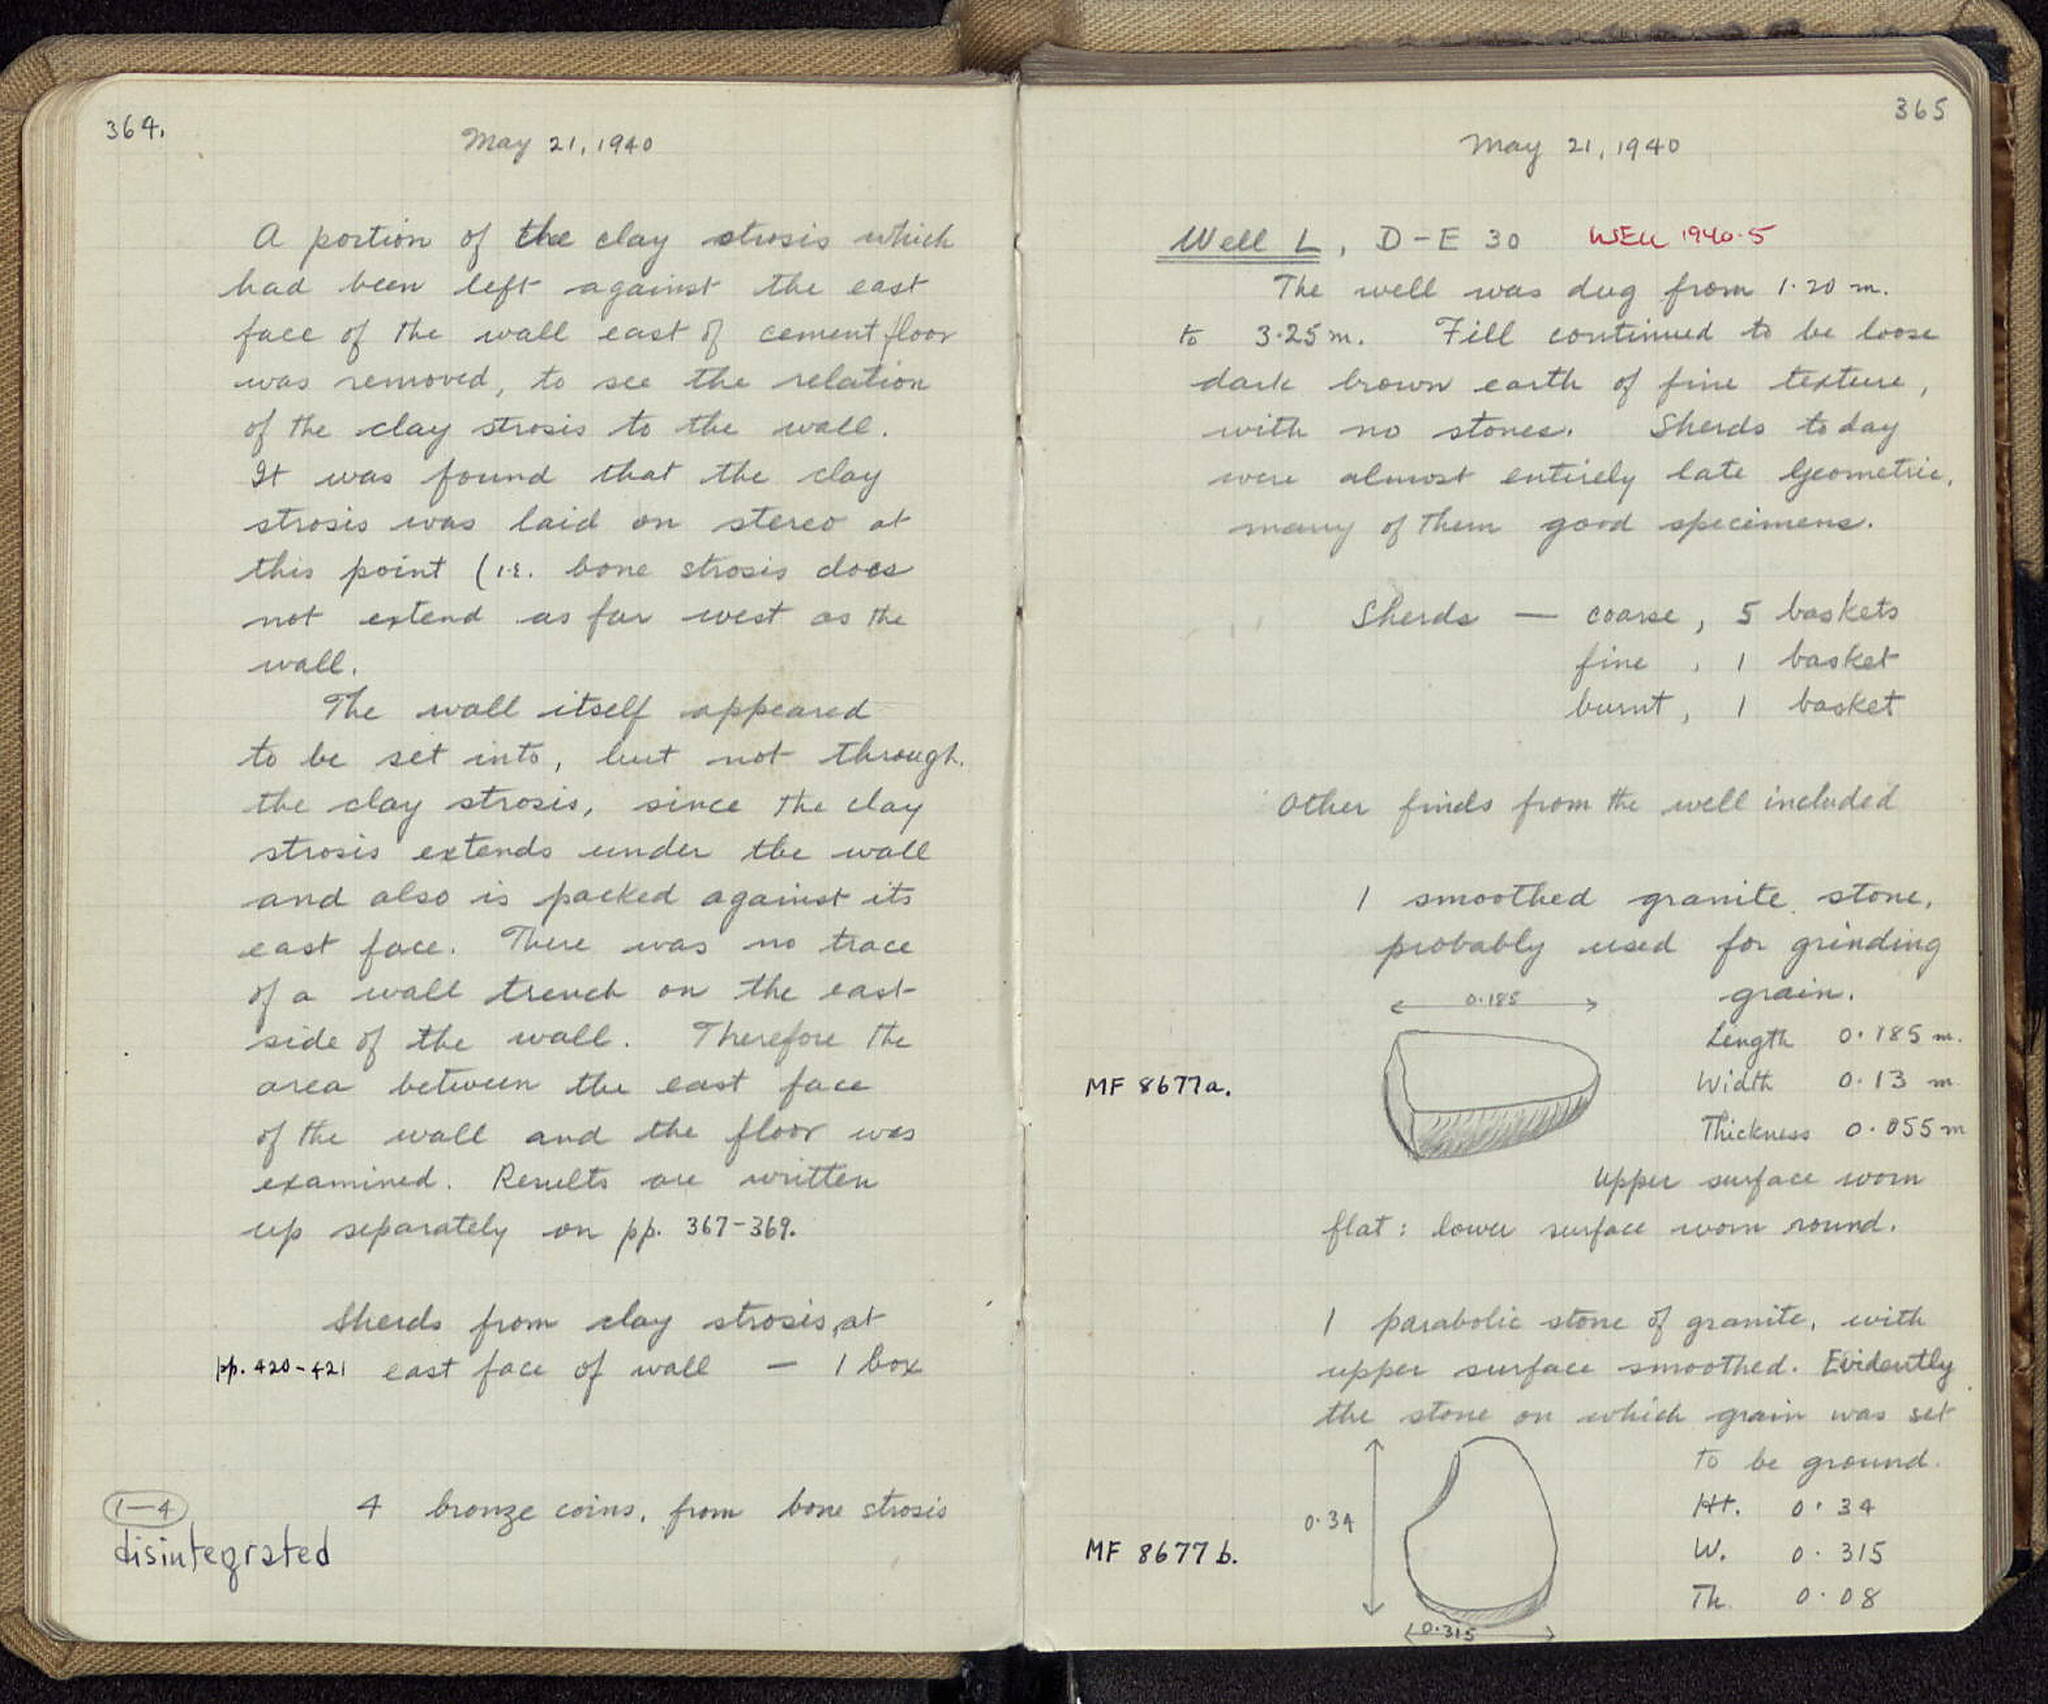 364.
May 21, 1940
A portion of the clay strosis which
had been left against the east
face of the wall east of cement floor
was removed, to see the relation
of the clay strosis to the wall.
It was found that the clay
strosis was laid on stereo at
this point (i.e. bone strosis does
not extend as far west as the
wall.
The wall itself appeared
to be set into, but not through
the clay strosis, since the clay
strosis extends under the wall
and also is packed against its
east face. There was no trace
of a wall trench on the east
side of the wall. Therefore the
area between the east face
of the wall and the floor was
examined. Results are written
up separately on pp. 367-369.
Sherds from clay strosis, at
pp. 420-421 east face of wall — 1 box
1-4 4 bronze coins, from bone strosis
disintegrated
365
May 21, 1940
Well L, D-E 30 WELL 1940-5
The well was dug from 1.20 m.
to 3.25 m. Fill continued to be loose
dark brown earth of fine texture,
with no stones. Sherds today
were almost entirely late Geometric,
many of them good specimens.
Sherds — coarse, 5 baskets
fine, 1 basket
burnt, 1 basket
Other finds from the well included
1 smoothed granite stone,
probably used for grinding
grain.
0.185
Length 0.185 m.
MF 8677a.
Width 0.13 m
Thickness 0.055 m
Upper surface worn
flat: lower surface worn round.
1 parabolic stone of granite, with
upper surface smoothed. Evidently
the stone on which grain was set
to be ground.
Ht. 0.34
0.34
MF 8677 b.
W. 0.315
Th. 0.08
0.315